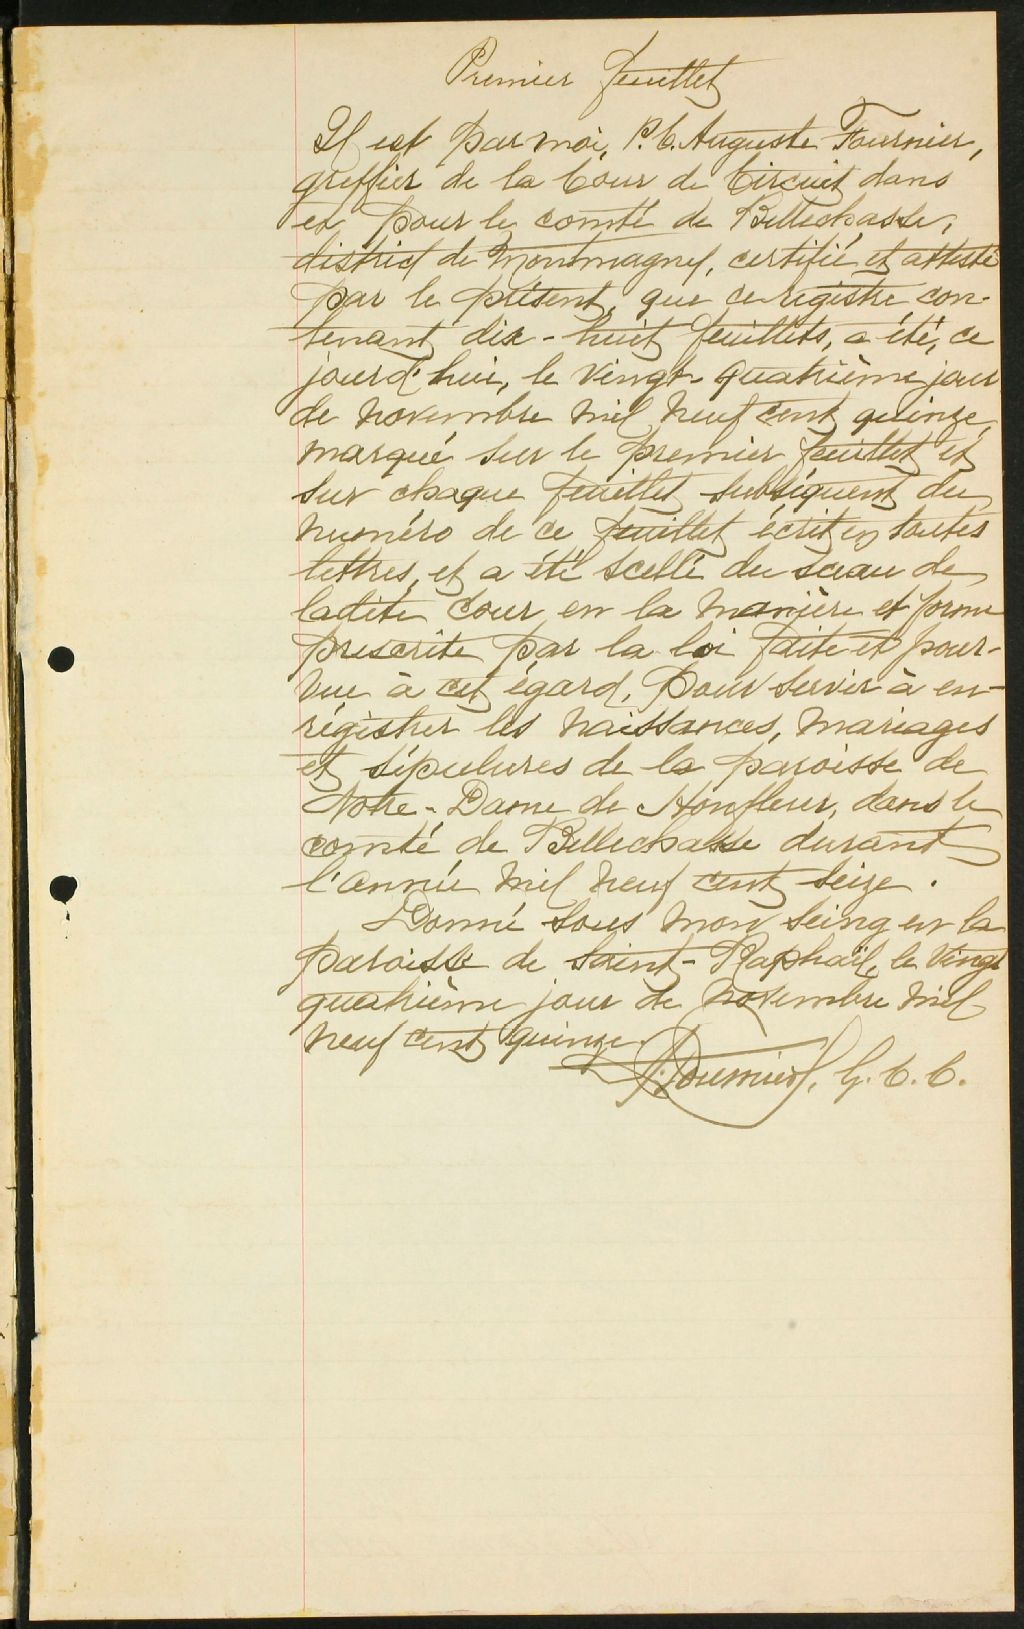 Premier feuillet
Il est par moi, P. C. Auguste Fournier,
greffier de la Cour de Circuit dans
et pour le comté de Bellechasse,
district de Montmagny, certifié et attesté
par le présent, que ce registre con-
tenant dix-huit feuillets, a été, ce
jourd'hui, le vingt-quatrième jour
de novembre mil neuf cent quinze,
marqué sur le premier feuillet et
sur chaque feuillet subséquent du
numéro de ce feuillet écrit en toutes
lettres, et a été scellé du sceau de
ladite Cour en la manière et forme
prescrite par la loi faite et pour-
vue à cet égard, pour servir à en-
régistrer les naissances, mariages
et sépulures de la paroisse de
Notre-Dame de Honfleur, dans le
comté de Bellechasse durant
l'année mil neuf cent seize.
Donné sous mon seing en la
paroisse de Saint-Raphaël, le vingt
quatrième jour de novembre mil
neuf cent quinze.
Fournier, G. C. C.